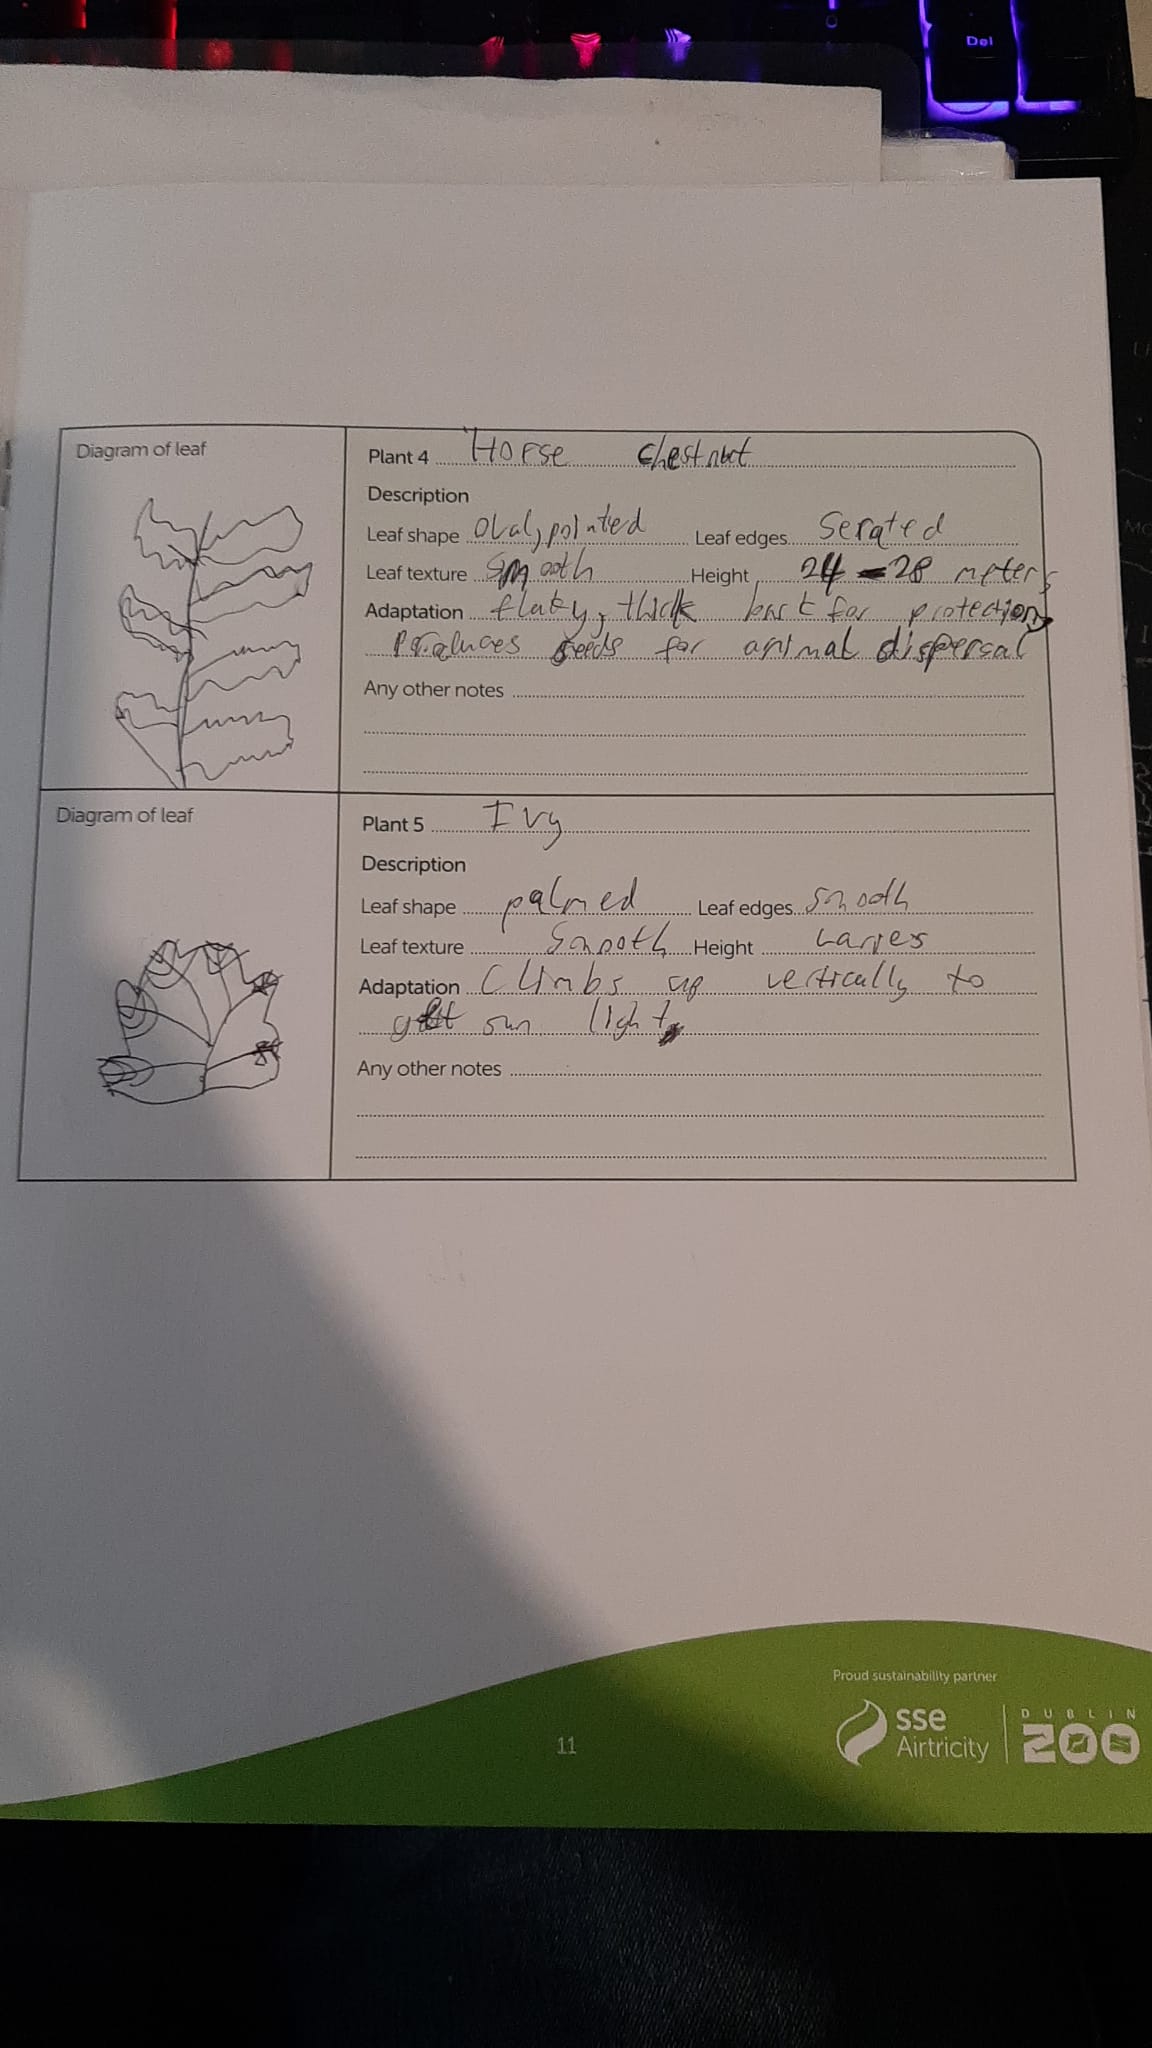 Del
Diagram of leaf
Plant 4 Horse chestnut
Description
Leaf shape Oval, pointed Leaf edges Serated
Leaf texture Smooth Height 24 - 28 meters
Adaptation flaky, thick bark for protection,
Produces seeds for animal dispersal
Any other notes
Diagram of leaf
Plant 5 Ivy
Description
Leaf shape palmed Leaf edges Smooth
Leaf texture Smooth Height Varies
Adaptation Climbs up vertically to
get sun light
Any other notes
Proud sustainability partner
sse
Airtricity
DUBLIN
ZOO
11